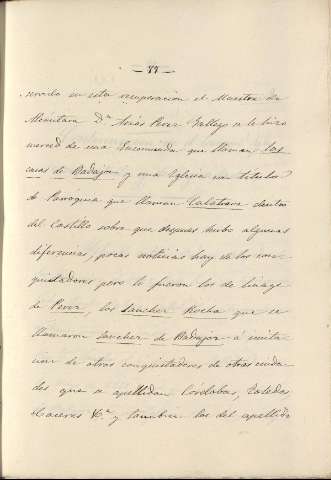 — 77 —
servido en esta recuperacion el Maestre de
Alcantara Dn. Arias Perez Gallego se le hizo
merced de una Encomienda que llaman las
casas de Badajoz y una Iglesia con titulo
de Parroquia que llaman Calatrava dentro
del Castillo sobre que despues hubo algunas
diferencias, pocas noticias hay de los con-
quistadores pero lo fueron los de linage
de Perez, los Sanchez Rocha que se
llamaron Sanchez de Badajoz á imita-
cion de otros conquistadores de otras ciuda-
des que se apellidan Cordobas, Toledos
Caceres &a. y tambien los del apellido